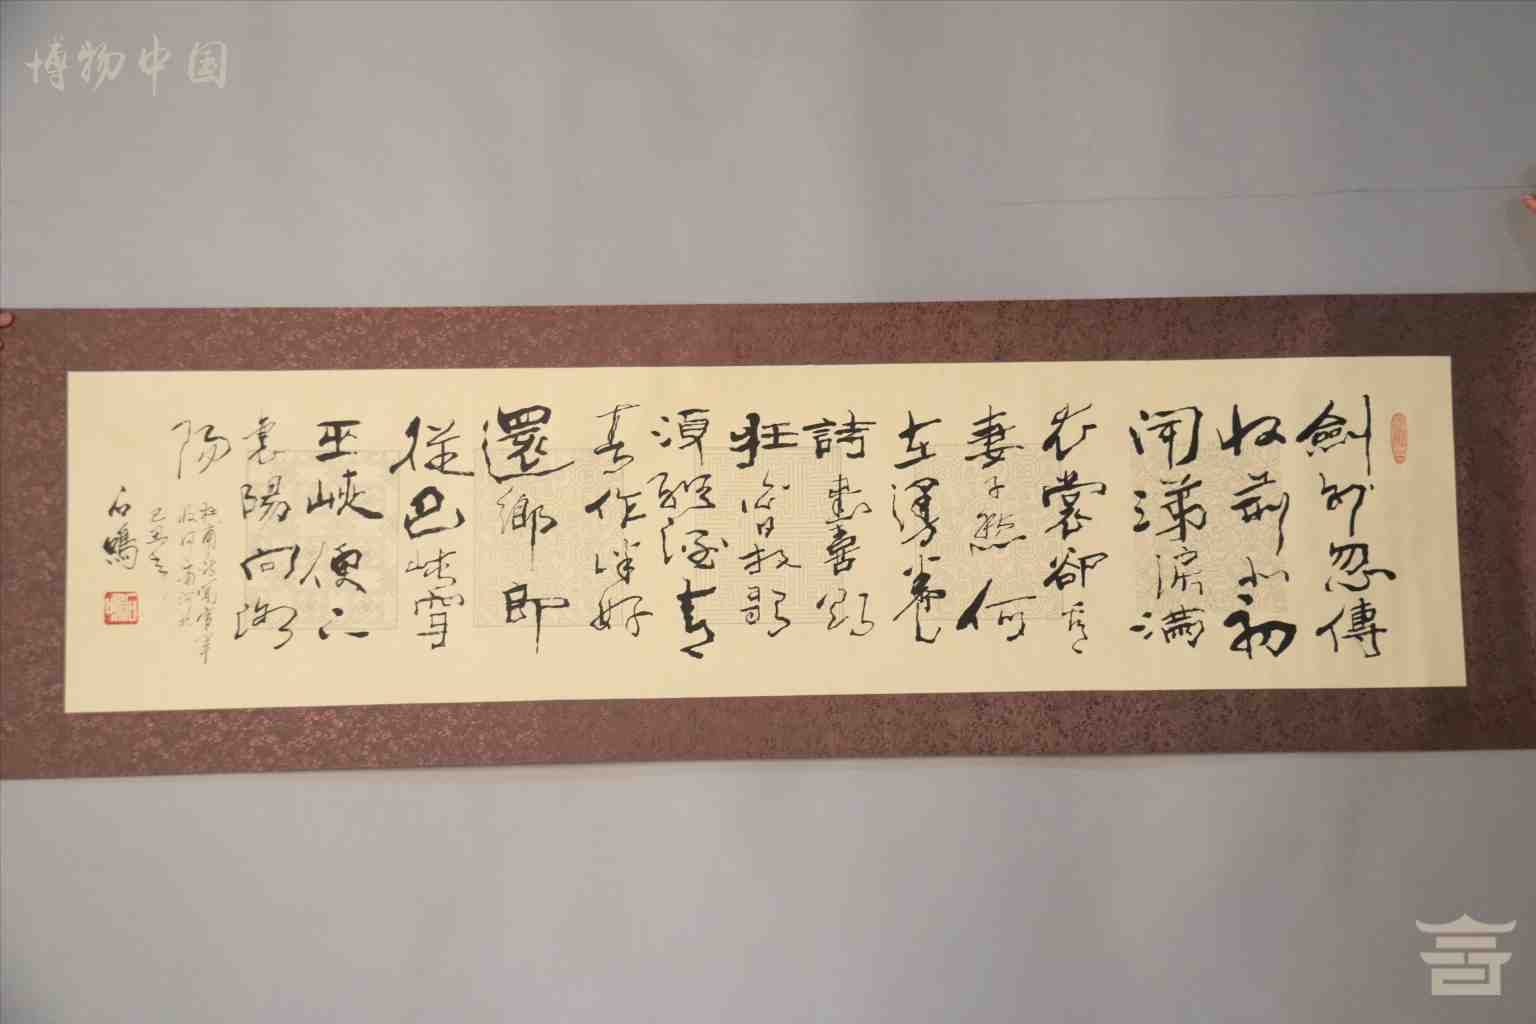 博物中国
劍外忽傳
收薊北初
聞涕淚滿
衣裳卻看
妻子愁何
在漫卷
詩書喜欲
狂白日放歌
須縱酒青
春作伴好
還鄉即
從巴峽穿
巫峽便下
襄陽向洛
陽
杜甫詩聞官軍
收河南河北
石鳴